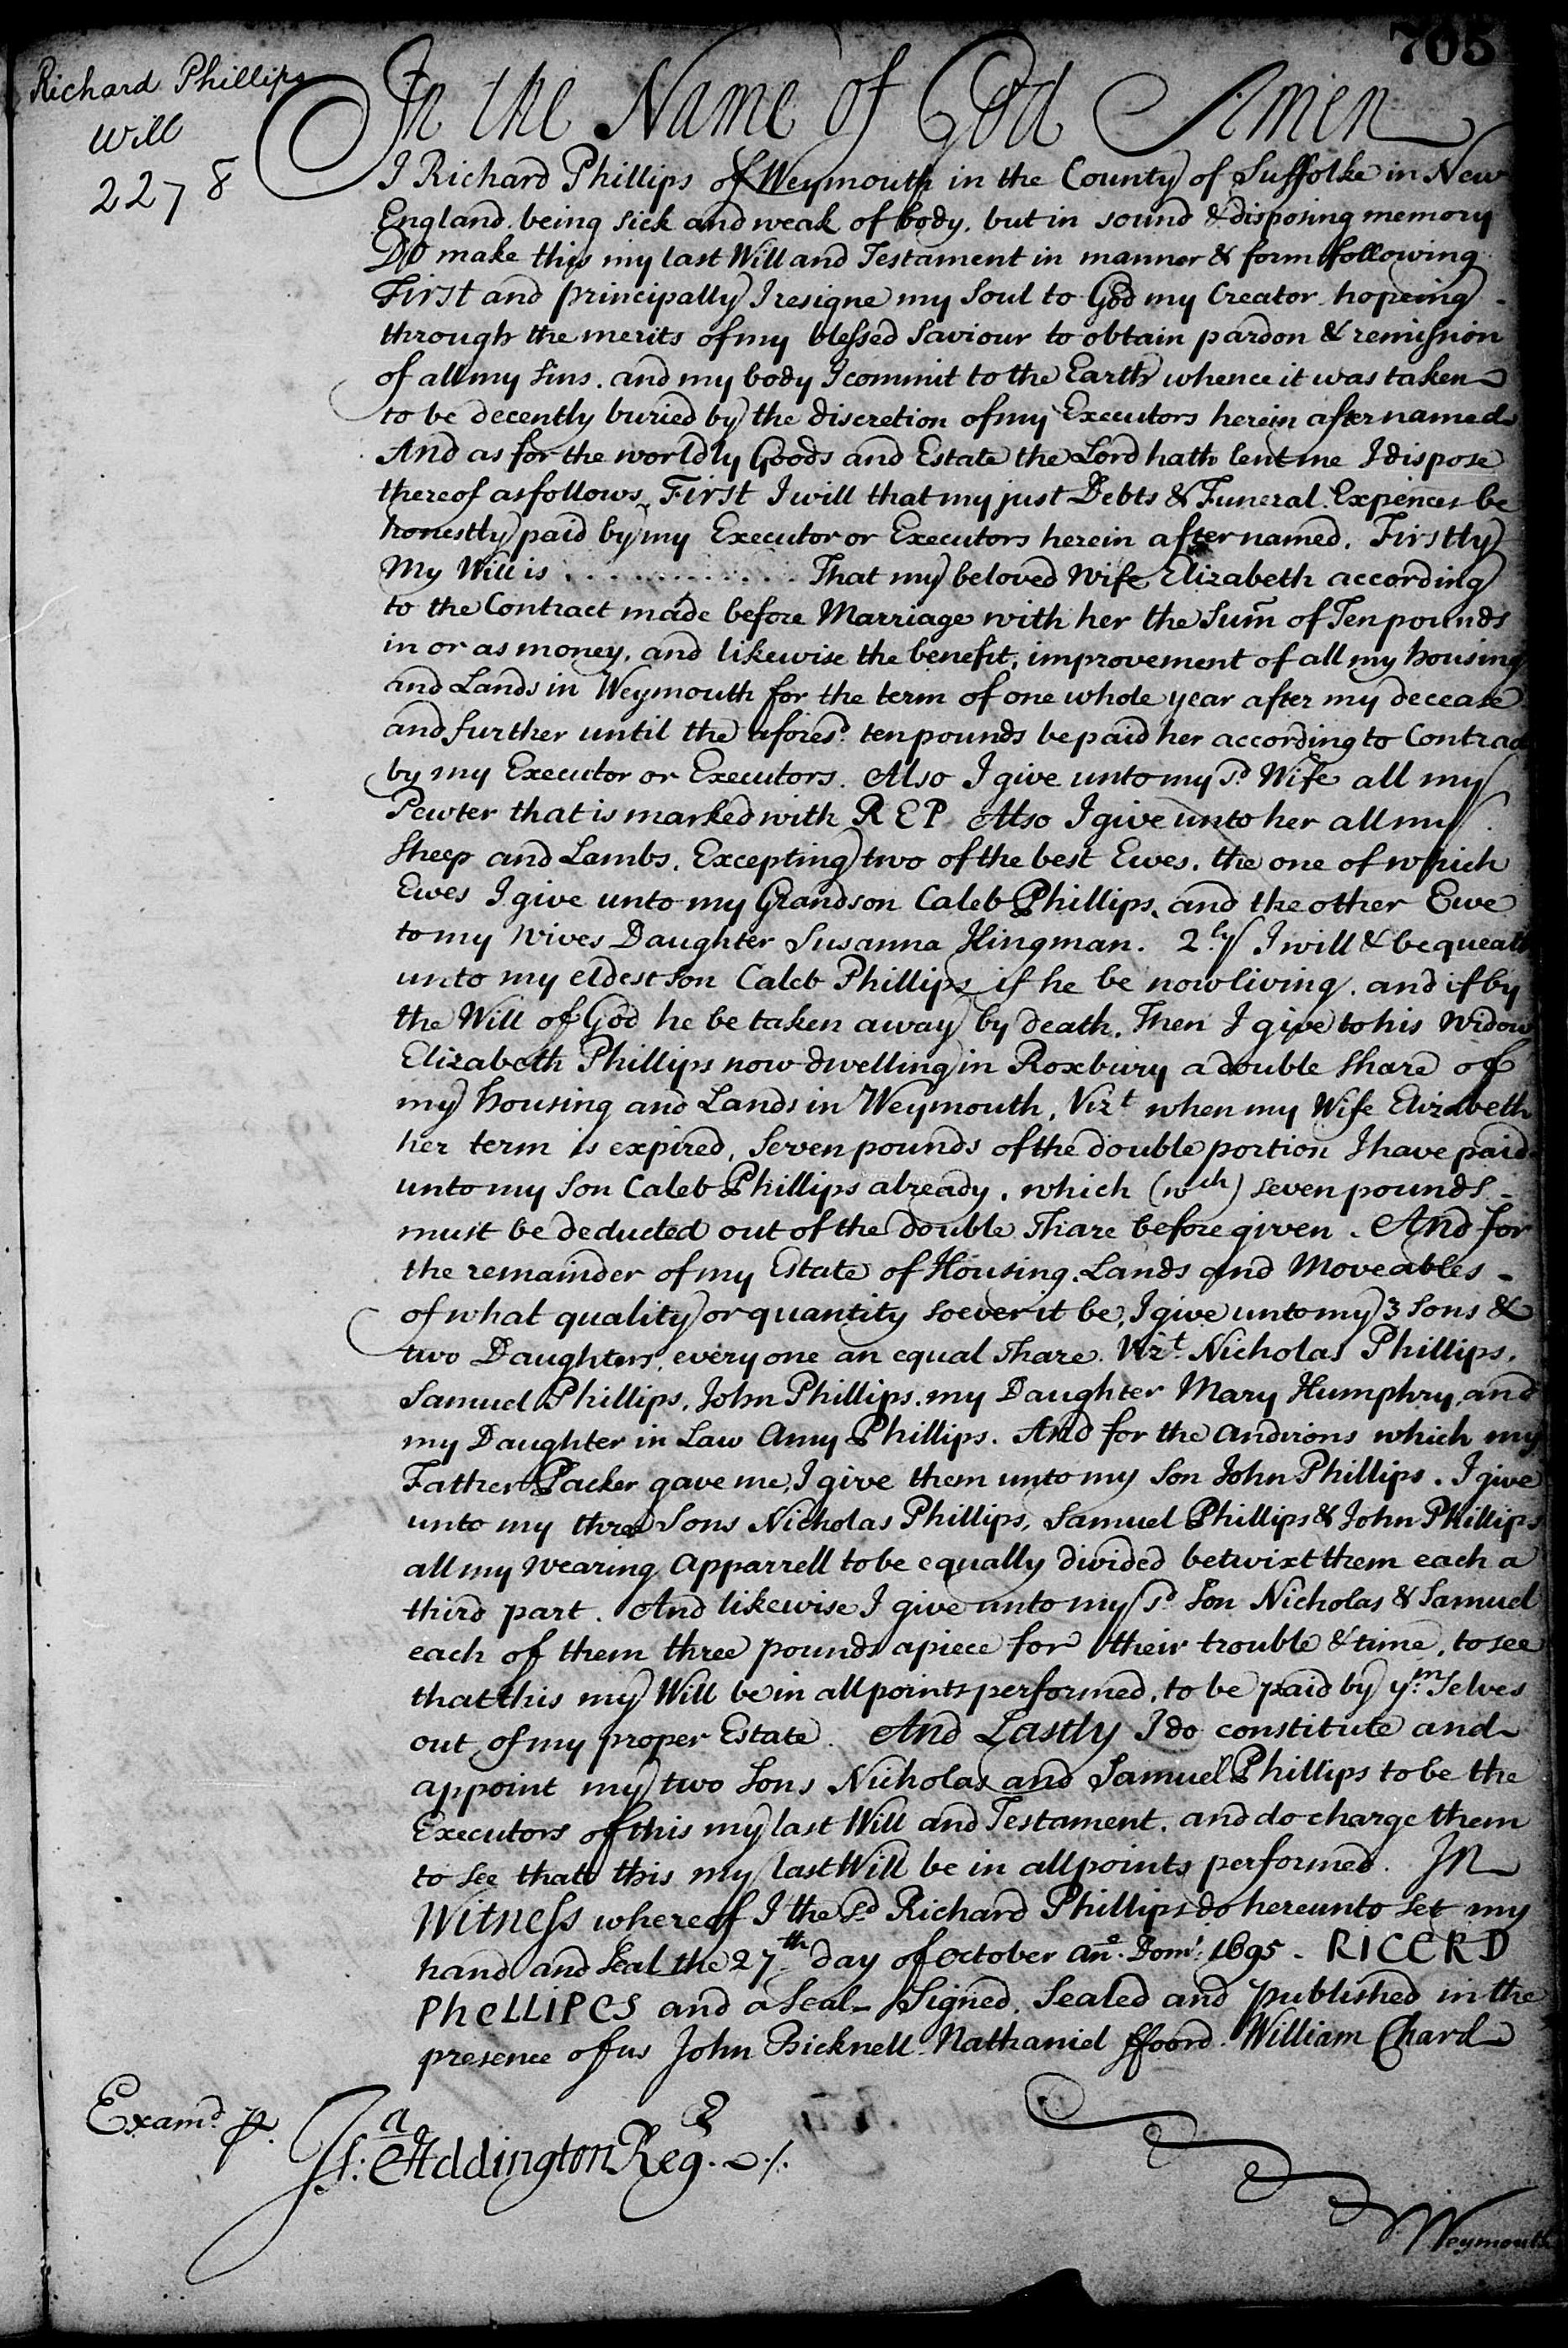 705
Richard Phillips
Will
2278
In the Name of God Amen
I Richard Phillips of Weymouth in the County of Suffolke in New
England. being sick and weak of body, but in sound & disposing memory
Do make this my last Will and Testament in manner & form following
First and principally I resigne my Soul to God my Creator hopeing -
through the merits of my blessed Saviour to obtain pardon & remission
of all my Sins. and my body I commit to the Earth whence it was taken
to be decently buried by the discretion of my Executors herein after named.
And as for the worldly Goods and Estate the Lord hath lent me I dispose
thereof as follows, First I will that my just Debts & Funeral Expences be
honestly paid by my Executor or Executors herein after named. Firstly
My Will is . . . . . . . . . . . . That my beloved Wife Elizabeth according
to the Contract made before Marriage with her the Sum̅ of Ten pounds
in or as money, and likewise the benefit, improvement of all my housing
and Lands in Weymouth for the term of one whole year after my decease
and further until the afores.d ten pounds be paid her according to Contract
by my Executor or Executors. Also I give unto my s.d Wife all my
Pewter that is marked with R E P Also I give unto her all my
Sheep and Lambs, Excepting two of the best Ewes. the one of which
Ewes I give unto my Grandson Caleb Phillips, and the other Ewe
to my Wives Daughter Susanna Kingman. 2.ly I will & bequeath
unto my eldest Son Caleb Phillips if he be now living. and if by
the Will of God he be taken away by death, Then I give to his Widow
Elizabeth Phillips now dwelling in Roxbury a double Share of
my housing and Lands in Weymouth, Vizt when my Wife Elizabeth
her term is expired, Seven pounds of the double portion I have paid
unto my Son Caleb Phillips already, which (wch) seven pounds -
must be deducted out of the double Share before given. And for
the remainder of my Estate of Housing. Lands and Moveables -
of what quality or quantity soever it be, I give unto my 3 Sons &
two Daughters, every one an equal Share. Vizt. Nicholas Phillips,
Samuel Phillips, John Phillips, my Daughter Mary Humphry, and
my Daughter in Law Amy Phillips. And for the andirons which my
Father Packer gave me, I give them unto my Son John Phillips. I give
unto my three Sons Nicholas Phillips, Samuel Phillips & John Phillips
all my Wearing Apparrell to be equally divided betwixt them each a
third part. And likewise I give unto my s.d Son Nicholas & Samuel
each of them three pounds apiece for their trouble & time, to see
that this my Will be in all points performed, to be paid by y.m Selves
out of my proper Estate. And Lastly I do constitute and
appoint my two Sons Nicholas and Samuel Phillips to be the
Executors of this my last Will and Testament, and do charge them
to see that this my last Will be in all points performed. In
Witness whereof I the s.d Richard Phillips do hereunto Set my
hand and Seal the 27th day of October An.o Dom.i 1695 - RICERD
PheLLIPES and a Seal - Signed, Sealed and published in the
presence of us John Bicknell. Nathaniel ffoord. William Chard
Exam.d p.
Js.a Addington Reg.r
Weymouth